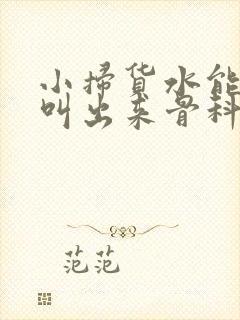 小掃货水能
叫出来骨科
范范